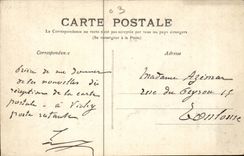 03
CARTE POSTALE
La Correspondance au recto n'est pas acceptée par tous les pays étrangers
(Se renseigner à la Poste)
Correspondance
Adresse
Prière de me donner
de vos nouvelles dès
réception de la carte
postale à Vichy
poste restante
Madame Azimar
rue du Peyrou 15
Toulouse